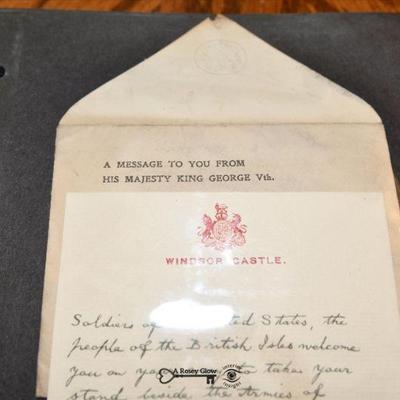 A MESSAGE TO YOU FROM
HIS MAJESTY KING GEORGE Vth.
WINDSOR CASTLE.
Soldiers of States, the
people of the British Isles welcome
you on to take your
stand beside the Armies of
A Rosey Glow